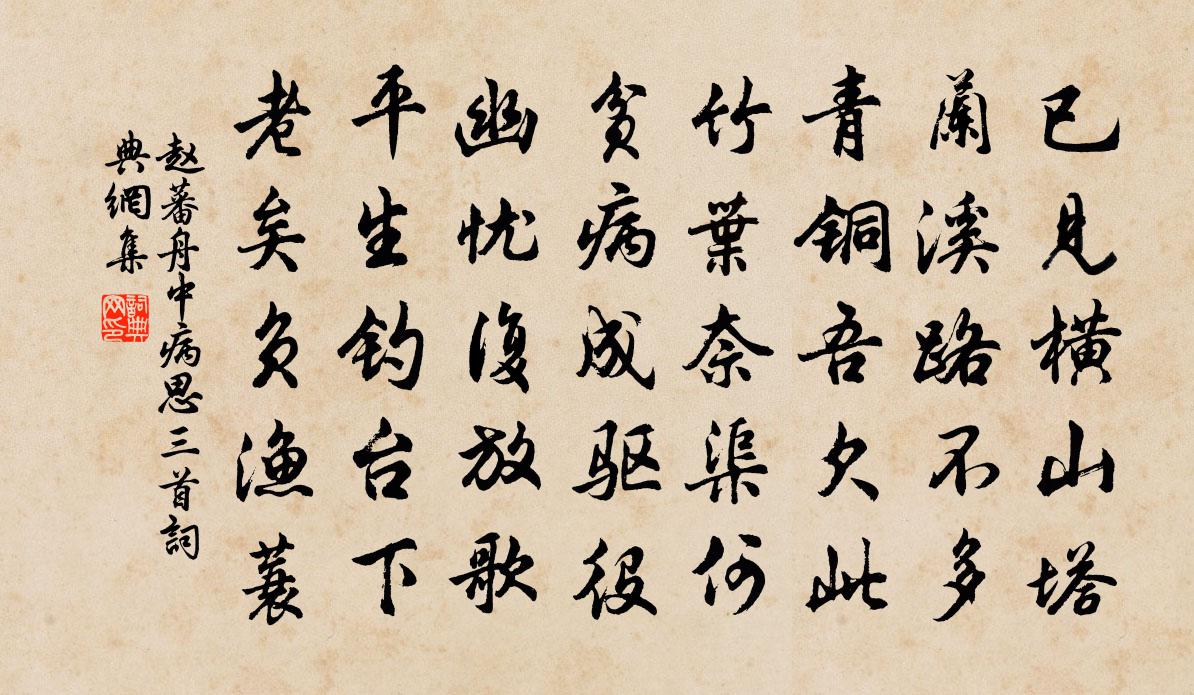 已见横山塔
蘭溪路不多
青铜吾欠此
竹葉奈渠何
贫病成驱役
幽忧復放歌
平生钓台下
老矣负渔蓑
赵蕃舟中病思三首詞
典網集
詞典
网印